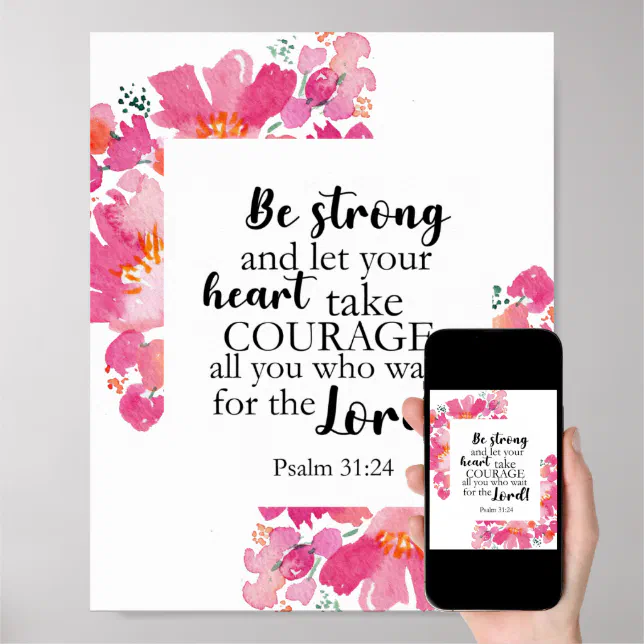 Be strong
and let your
heart take
COURAGE
all you who wai
for the Lord
Psalm 31:24
Be strong
and let your
heart take
COURAGE
all you who wait
for the Lord!
Psalm 31:24